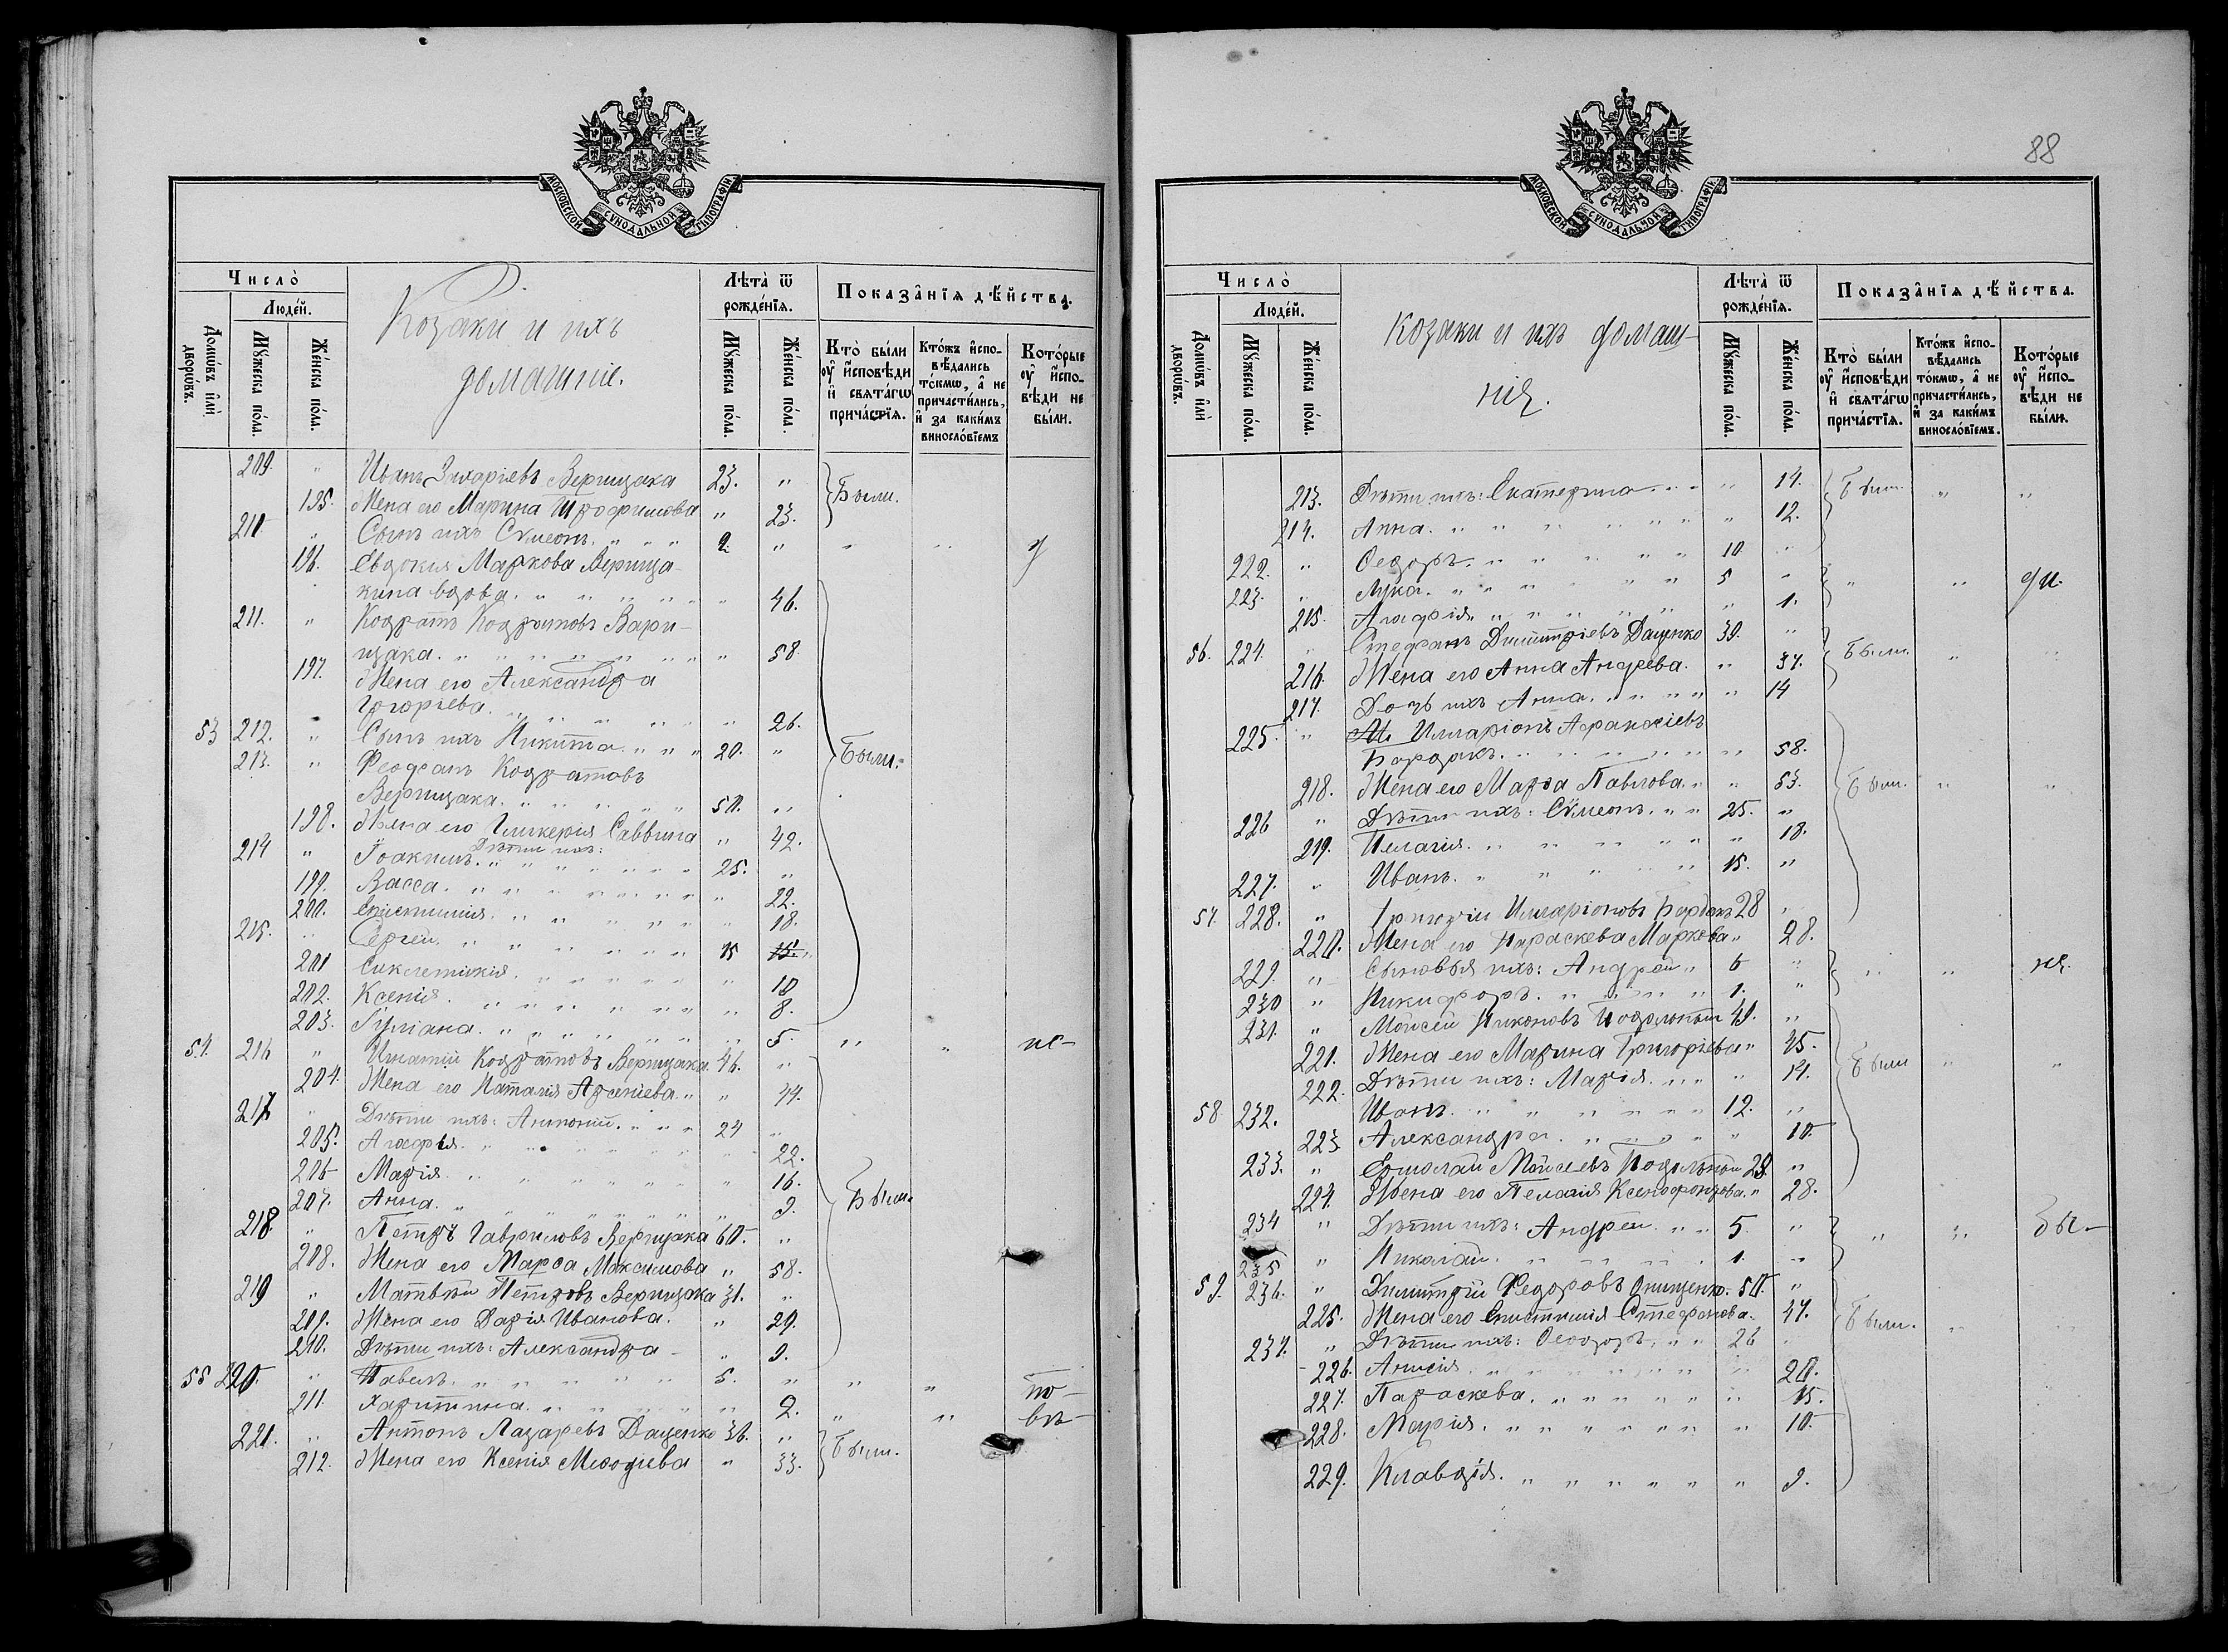 МОСКОВСКОЙ СѴНОДАЛЬНОЙ ТИПОГРАФІИ.
Число̀
Людей.
Домѡвъ и҆лѝ дворѡвъ.
Мꙋжеска пола.
Женска пола.
Козаки и ихъ
домашніе.
Лѣта̀ ѿ рожденїѧ.
Мꙋжеска пола.
Женска пола.
Показанїѧ дѣйства.
Кто̀ были ᲂу҆ и҆сповѣди и҆ свѧтагѡ причастїѧ.
Ктожъ и҆сповѣдались токмѡ, а҆ не причастились, и҆ за какимъ винословїемъ
Которые ᲂу҆ и҆сповѣди не были.
209 " Иванъ Захаріевъ Верещака 23. " Были.
195. Жена его Марина Трофимова " 23.
210 " Сынъ ихъ Сѷмеонъ. " " " 2 " " "
196. Евдокія Маркова Верища-
кина вдова. " " " " " " 46.
211. " Кодратъ Кодратовъ Вари-
щака. " " " " " " " 58.
197. Жена его Александра
Григоріева. " " " " " " 26.
53 212. " Сынъ ихъ Никита. " " " 20. " Были.
213. " Феофанъ Кодратовъ
Верищака. " " " " " 50. "
198. Жена его Гликерія Саввина " 42.
Дѣти ихъ:
214 " Іоакимъ. " " " " " 25. "
199. Васса. " " " " " " " 22.
200. Епистимія. " " " " " " 18.
215. " Сергей. " " " " " " 15 15.
201 Сиклетикія. " " " " " " 10
202. Ксенія. " " " " " " 8.
203. Іуліана. " " " " " " 5. " " не-
54. 216 " Игнатій Кодратовъ Верищака. 46. "
204. Жена его Наталія Арсеніева. " " 44.
217 " Дѣти ихъ: Антоній. " " " 24 "
205. Агафія. " " " " " " 22.
206 Марія. " " " " " " 16.
207. Анна. " " " " " " 9. Были.
218 " Петръ Гавриловъ Верищака 60. "
208. Жена его Марфа Максимова " 58.
219 " Матвѣй Петровъ Верищака 31. "
209. Жена его Дарія Иванова. " 29.
210. Дѣти ихъ: Александра - " 9.
55 220. " Павелъ. " " " " " 5. " " " по-
211. Харитина. " " " " " 2. " " вѣ-
221. " Антонъ Лазаревъ Даценко 36. " Были.
212. Жена его Ксенія Меѳодіева " 33.
88
МОСКОВСКОЙ СѴНОДАЛЬНОЙ ТИПОГРАФІИ.
Число̀
Людей.
Домѡвъ и҆лѝ дворѡвъ.
Мꙋжеска пола.
Женска пола.
Козаки и ихъ домаш-
ніе.
Лѣта̀ ѿ рожденїѧ.
Мꙋжеска пола.
Женска пола.
Показанїѧ дѣйства.
Кто̀ были ᲂу҆ и҆сповѣди и҆ свѧтагѡ причастїѧ.
Ктожъ и҆сповѣдались токмѡ, а҆ не причастились, и҆ за какимъ винословїемъ.
Которые ᲂу҆ и҆сповѣди не были.
213. Дѣти ихъ: Екатерина " " " 14. Были " "
214. Анна. " " " " " " " 12.
222. " Ѳеодоръ. " " " " " 10 "
223. " Лука. " " " " " 5 " " "
215. Агафія " " " " " " 1.
56. 224. " Стефанъ Димитріевъ Даценко 39. "
216. Жена его Анна Андреева. " 37. Были. " "
217. Дочь ихъ Анна. " " " " 14
225. " Илларіонъ Афанасіевъ
Бардакъ. " " " " " " 58.
218. Жена его Марѳа Павлова. " " 53. Были. " "
226 " Дѣти ихъ: Сѷмеонъ. " " 25. "
219. Пелагія. " " " " " " 18.
227. " Иванъ. " " " " " 15. "
57. 228. " Илларіоновъ Бардакъ 28 "
220. Жена его Параскева Маркова " 28.
229. " Сыновья ихъ: Андрей " 6 " " " не.
230 " Никифоръ. " " " " 1. "
231. " Моисей Никоновъ 49. "
221. Жена его Марина Григоріева " 45.
222. Дѣти ихъ: Марія. " " " 14. Были " "
58 232. Иванъ. " " " " " " 12. "
223 Александра. " " " " " 10.
233. " Ермолай Моѵсеевъ 28. "
224. Жена его Пелагія Ксенофонтова. " 28.
234 " Дѣти ихъ: Андрей. " " 5. " " " бы-
235 " Николай. " " " " " 1. "
59. 236. " Димитрій Федоровъ Онищенко. 50. "
225. Жена его Епистимія Стефанова. 47. Были. " "
237. " Дѣти ихъ: Ѳеодоръ. " " 26 "
226. Анисія. " " " " " " 20.
227. Параскева. " " " " " " 15.
228. Марія. " " " " " " " 10.
229. Клавдія. " " " " " " 9.